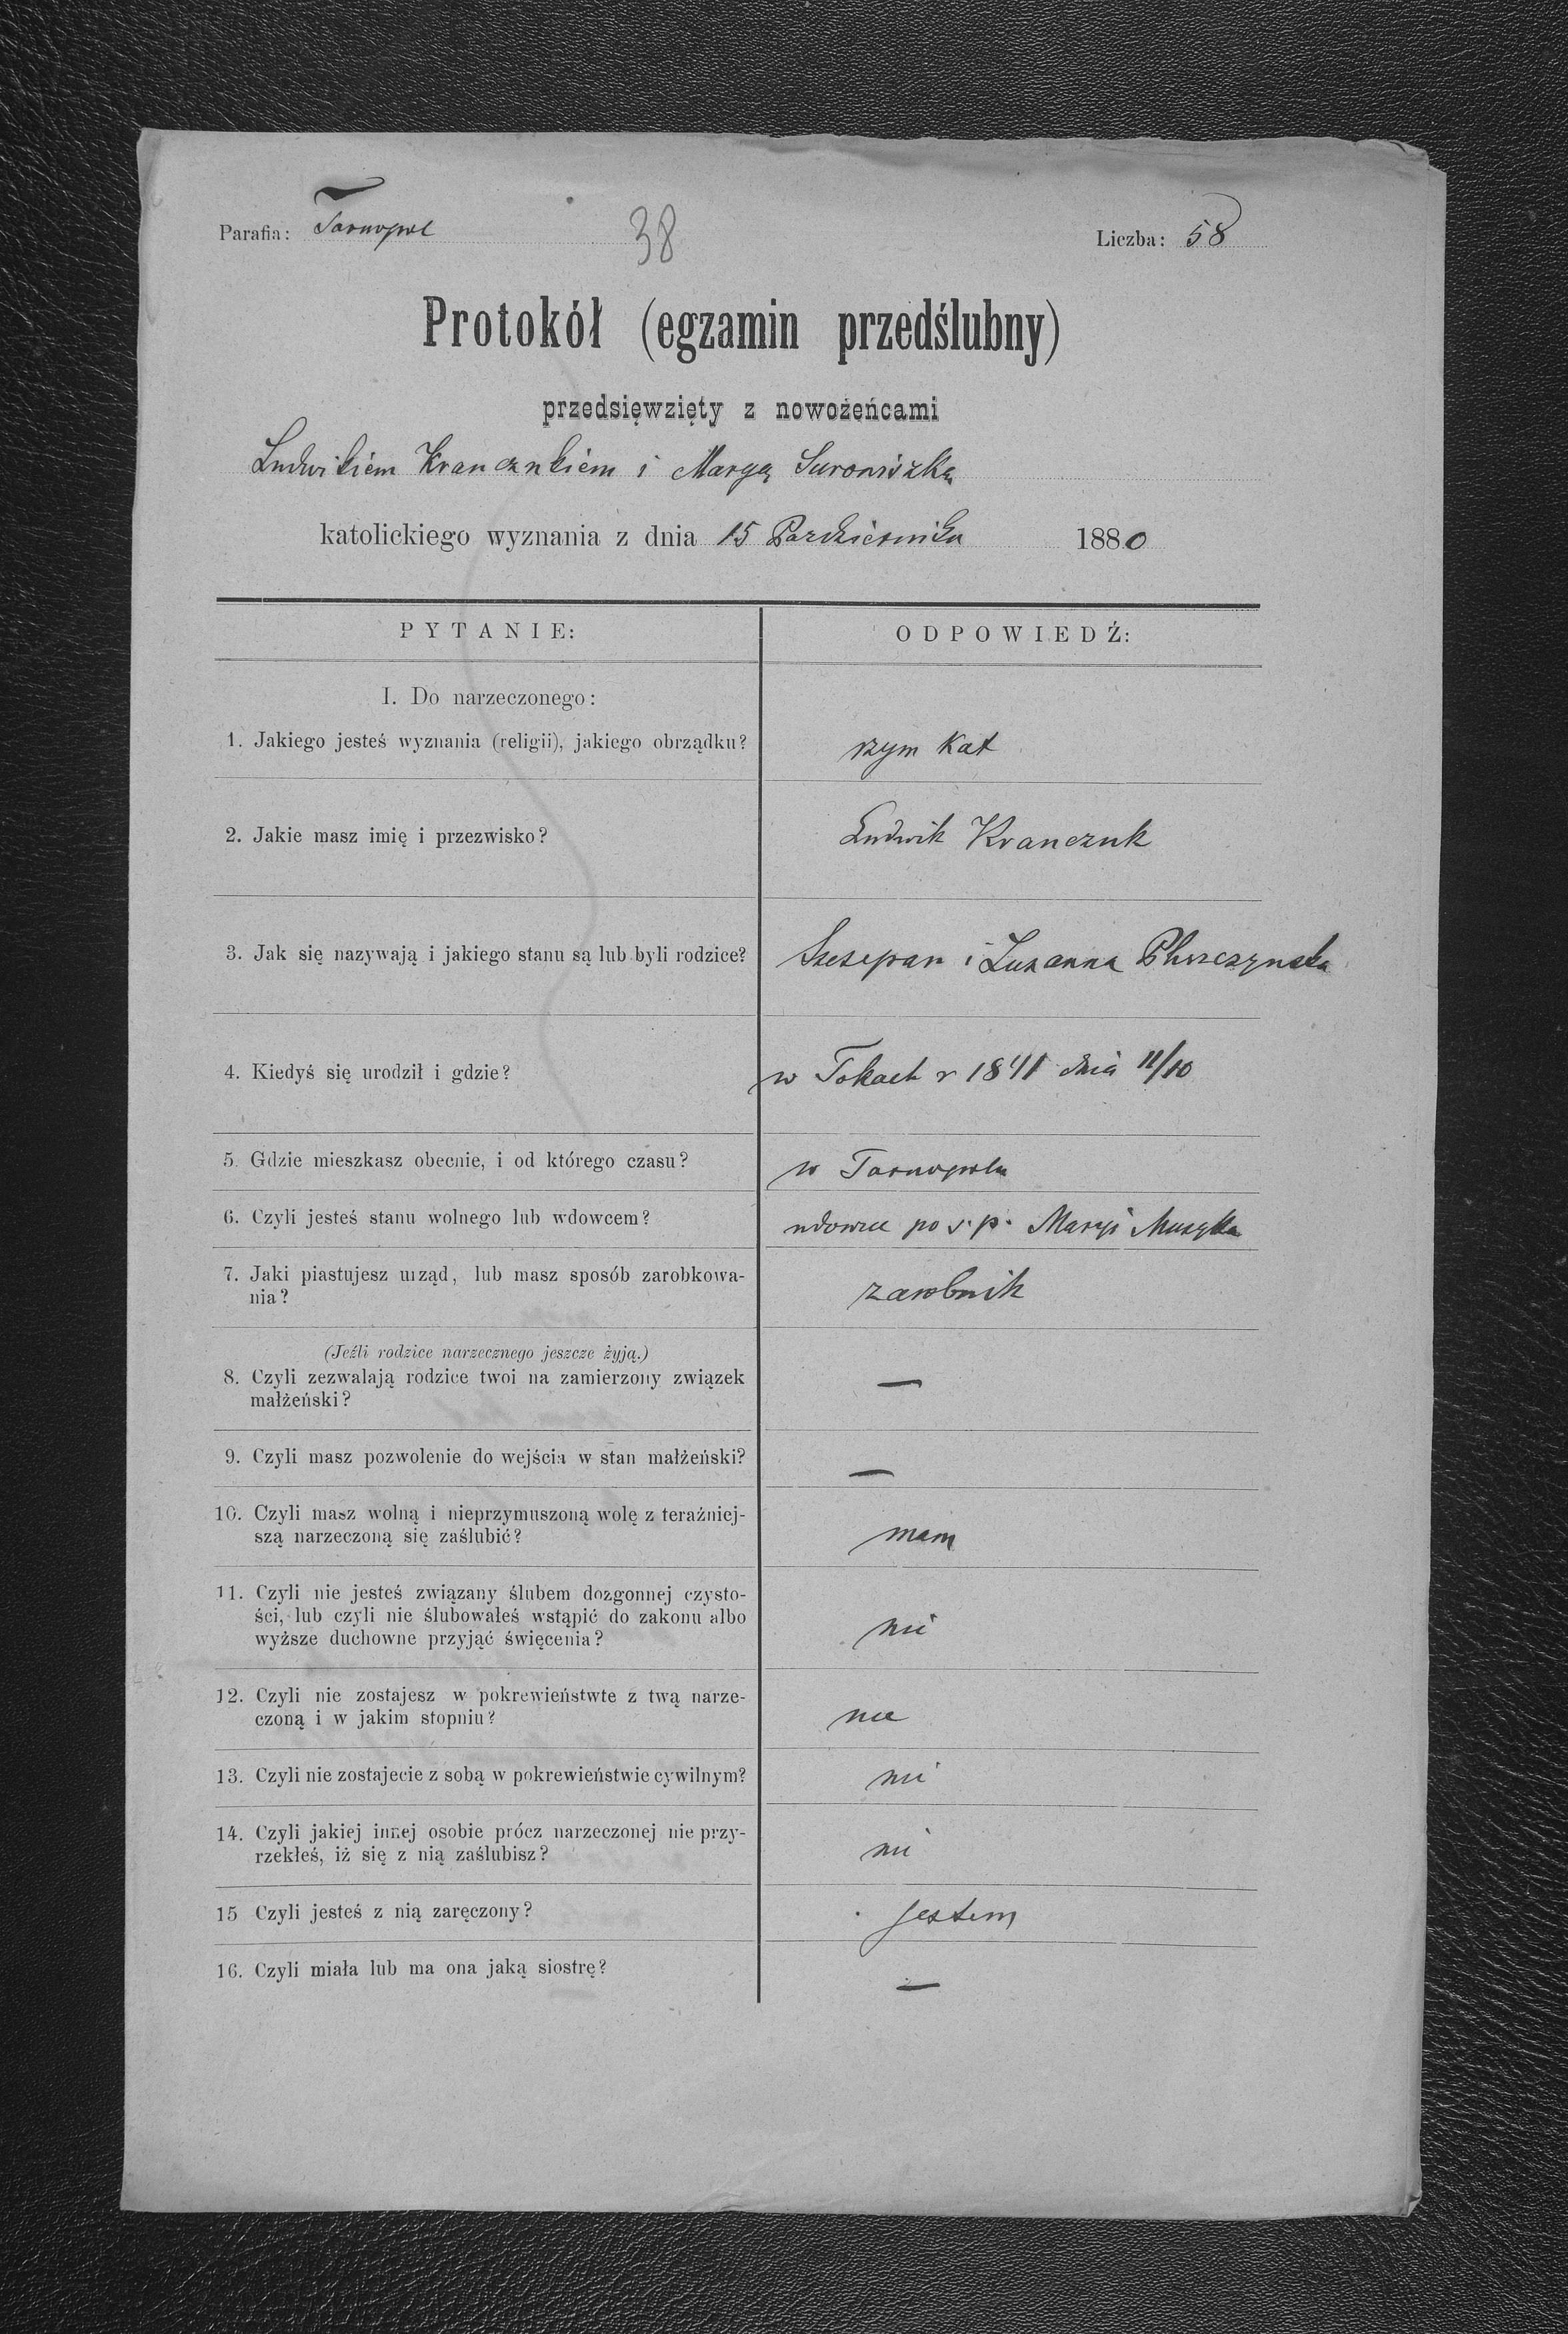 Parafia: Tarnopol
38
Liczba: 58
Protokół (egzamin przedślubny)
przedsięwzięty z nowożeńcami
Ludwikiem Kranczukiem i Maryą
katolickiego wyznania z dnia 15 Pazdziernika 1880
PYTANIE:
ODPOWIEDŹ:
I. Do narzeczonego:
1. Jakiego jesteś wyznania (religii), jakiego obrządku?
rzym kat
2. Jakie masz imię i przezwisko?
Ludwik Kranczuk
3. Jak się nazywają i jakiego stanu są lub byli rodzice?
Szczepan i Zuzanna
4. Kiedyś się urodził i gdzie?
w Tokach r 1841 dnia 11/10
5. Gdzie mieszkasz obecnie, i od którego czasu?
w Tarnopolu
6. Czyli jesteś stanu wolnego lub wdowcem?
po s.p. Maryi
7. Jaki piastujesz urząd, lub masz sposób zarobkowa-
nia?
zarobnik
(Jeźli rodzice narzecznego jeszcze żyją.)
8. Czyli zezwalają rodzice twoi na zamierzony związek
małżeński?
—
9. Czyli masz pozwolenie do wejścia w stan małżeński?
—
10. Czyli masz wolną i nieprzymuszoną wolę z teraźniej-
szą narzeczoną się zaślubić?
mam
11. Czyli nie jesteś związany ślubem dozgonnej czysto-
ści, lub czyli nie ślubowałeś wstąpić do zakonu albo
wyższe duchowne przyjąć święcenia?
nie
12. Czyli nie zostajesz w pokrewieństwte z twą narze-
czoną i w jakim stopniu?
nie
13. Czyli nie zostajecie z sobą w pokrewieństwie cywilnym?
nie
14. Czyli jakiej innej osobie prócz narzeczonej nie przy-
rzekłeś, iż się z nią zaślubisz?
nie
15 Czyli jesteś z nią zaręczony?
jestem
16. Czyli miała lub ma ona jaką siostrę?
—